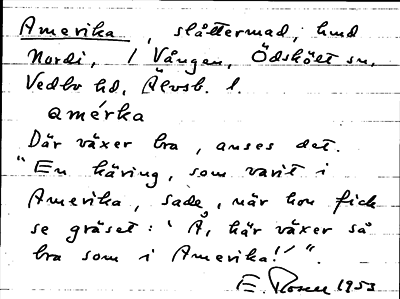 Amerika, slåttermad, hmd
Nordi, / Vången, Ödskölt sn,
Vedbo hd, Älvsb. l.
amérka
Där växer bra, anses det.
"En käring, som varit i
Amerika, sade, när hon fick
se gräset: 'Å, här växer så
bra som i Amerika!'".
E. Rosen 1953